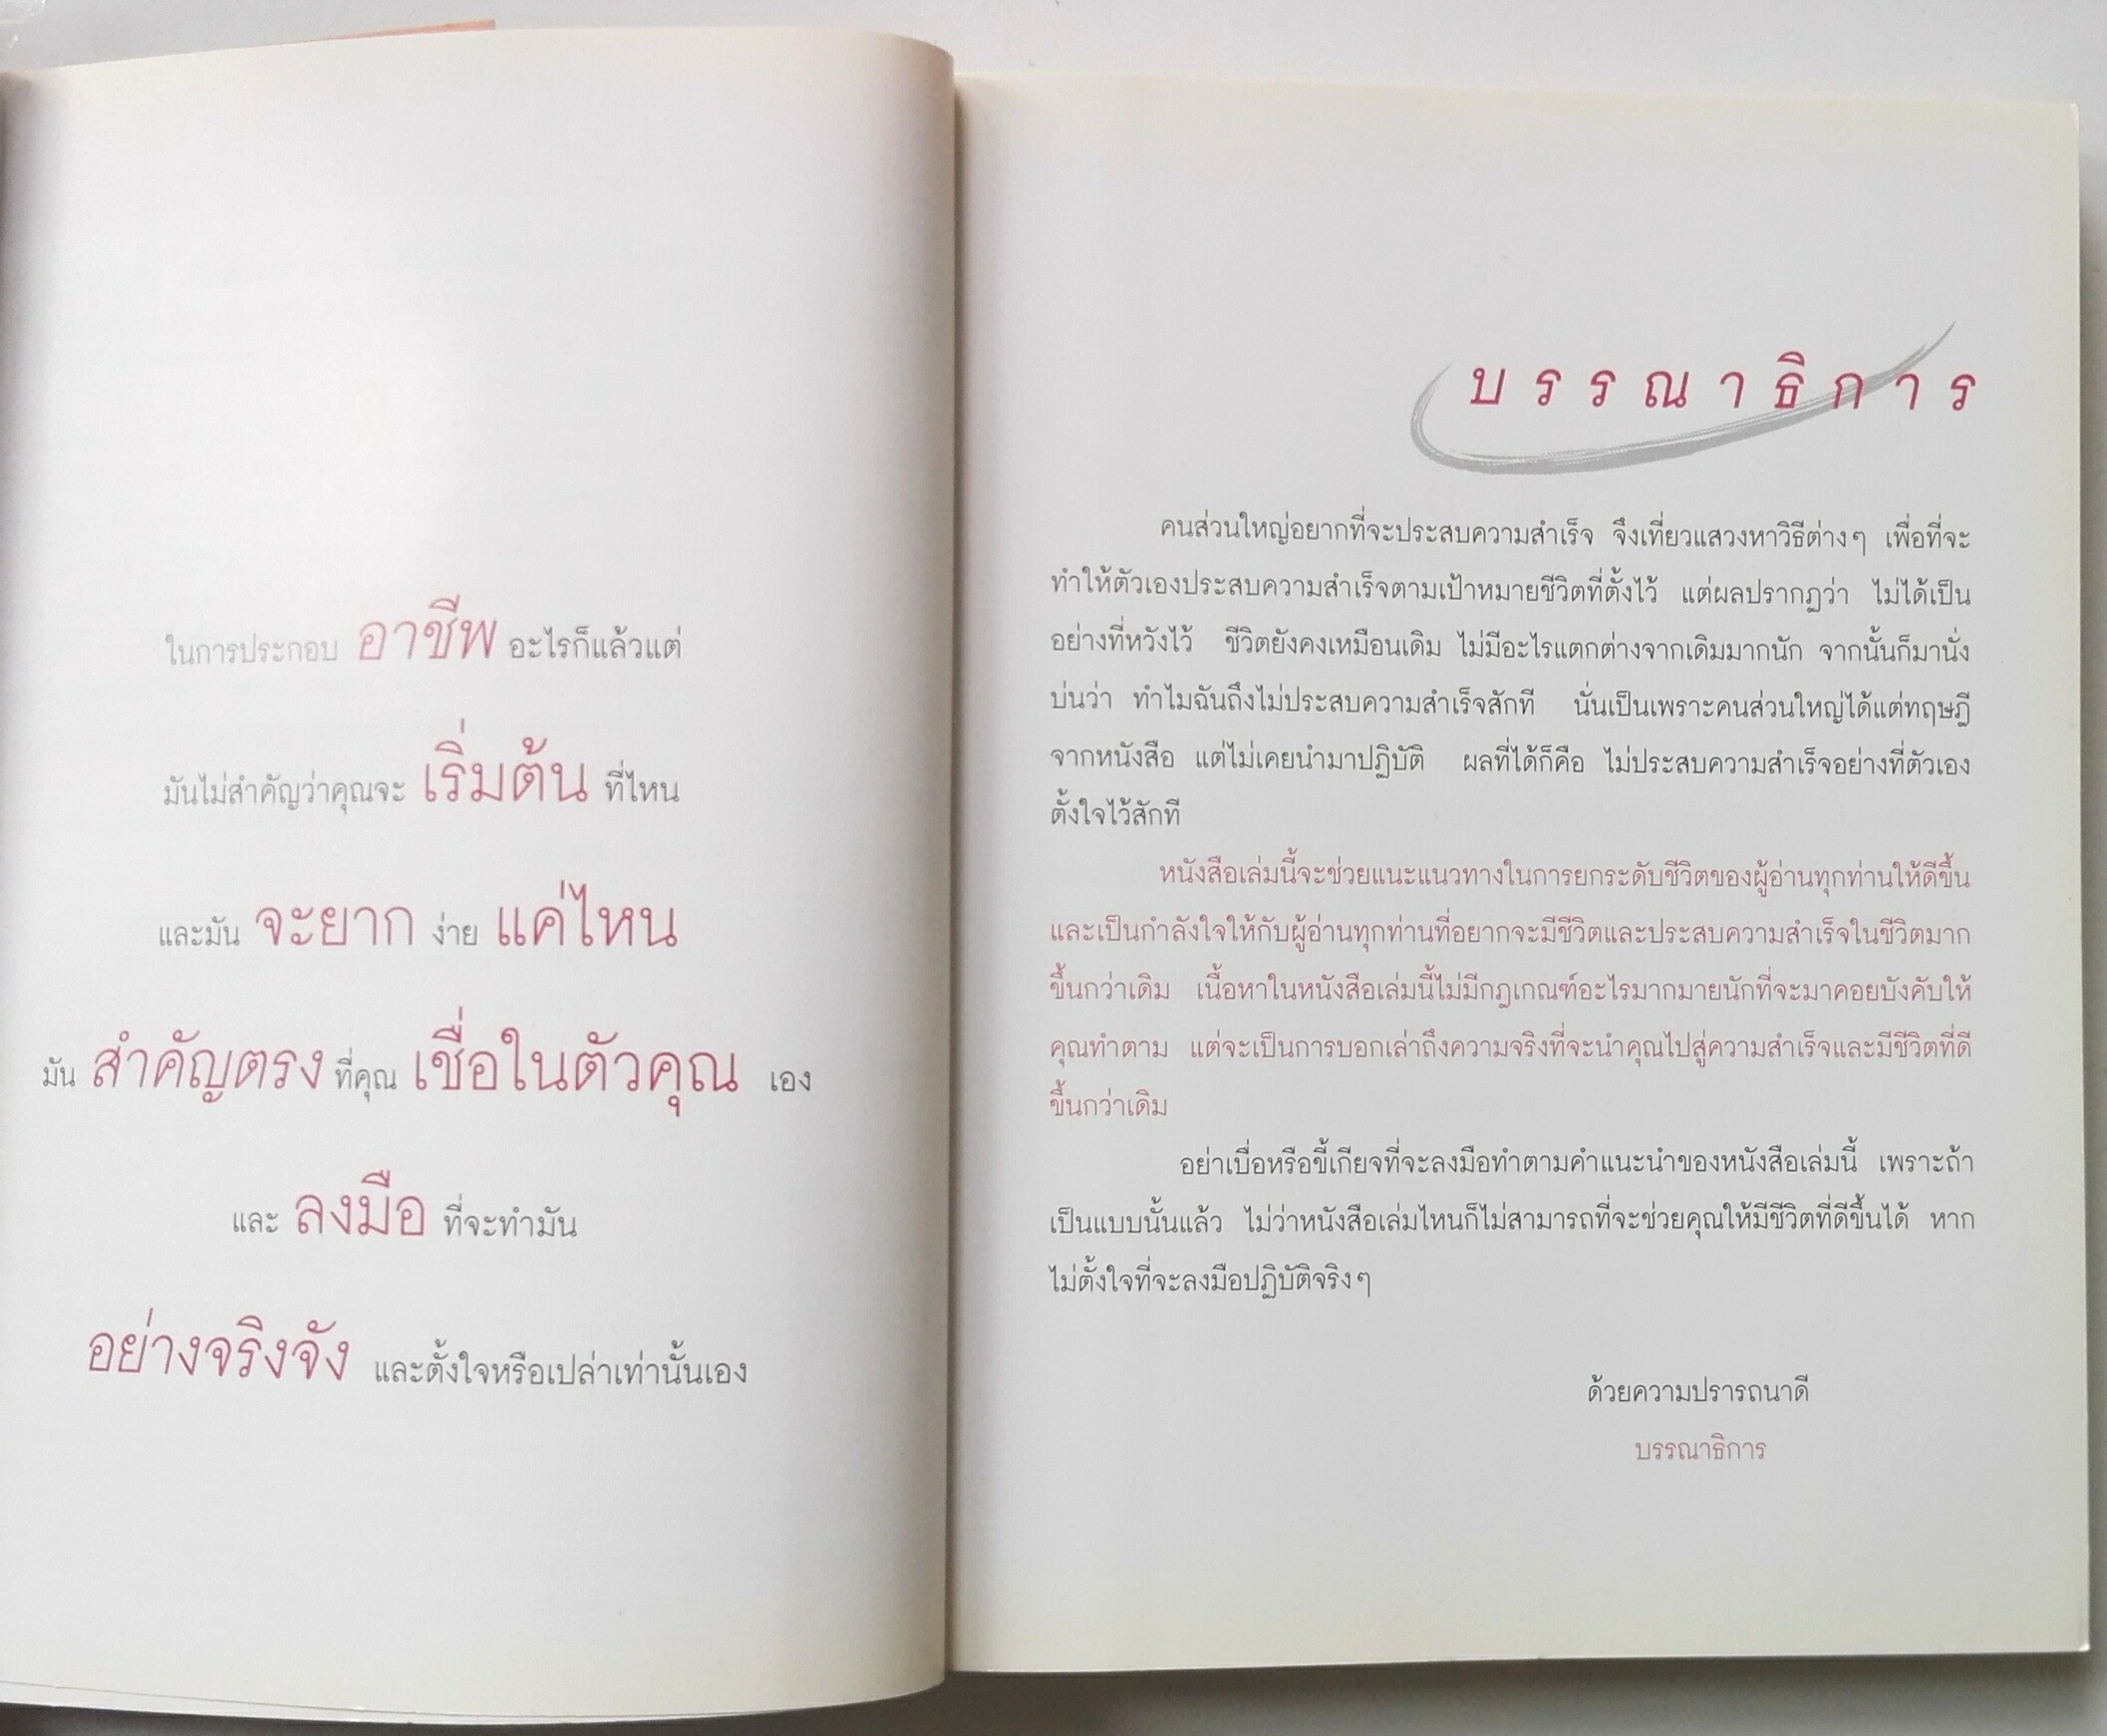 ในการประกอบ อาชีพ อะไรก็แล้วแต่
มันไม่สำคัญว่าคุณจะ เริ่มต้น ที่ไหน
และมัน จะยาก ง่าย แค่ไหน
มัน สำคัญตรง ที่คุณ เชื่อในตัวคุณ เอง
และ ลงมือ ที่จะทำมัน
อย่างจริงจัง และตั้งใจหรือเปล่าเท่านั้นเอง
บรรณาธิการ
คนส่วนใหญ่อยากที่จะประสบความสำเร็จ จึงเที่ยวแสวงหาวิธีต่างๆ เพื่อที่จะ
ทำให้ตัวเองประสบความสำเร็จตามเป้าหมายชีวิตที่ตั้งไว้ แต่ผลปรากฏว่า ไม่ได้เป็น
อย่างที่หวังไว้ ชีวิตยังคงเหมือนเดิม ไม่มีอะไรแตกต่างจากเดิมมากนัก จากนั้นก็มานั่ง
บ่นว่า ทำไมฉันถึงไม่ประสบความสำเร็จสักที นั่นเป็นเพราะคนส่วนใหญ่ได้แต่ทฤษฎี
จากหนังสือ แต่ไม่เคยนำมาปฏิบัติ ผลที่ได้ก็คือ ไม่ประสบความสำเร็จอย่างที่ตัวเอง
ตั้งใจไว้สักที
หนังสือเล่มนี้จะช่วยแนะแนวทางในการยกระดับชีวิตของผู้อ่านทุกท่านให้ดีขึ้น
และเป็นกำลังใจให้กับผู้อ่านทุกท่านที่อยากจะมีชีวิตและประสบความสำเร็จในชีวิตมาก
ขึ้นกว่าเดิม เนื้อหาในหนังสือเล่มนี้ไม่มีกฎเกณฑ์อะไรมากมายนักที่จะมาคอยบังคับให้
คุณทำตาม แต่จะเป็นการบอกเล่าถึงความจริงที่จะนำคุณไปสู่ความสำเร็จและมีชีวิตที่ดี
ขึ้นกว่าเดิม
อย่าเบื่อหรือขี้เกียจที่จะลงมือทำตามคำแนะนำของหนังสือเล่มนี้ เพราะถ้า
เป็นแบบนั้นแล้ว ไม่ว่าหนังสือเล่มไหนก็ไม่สามารถที่จะช่วยคุณให้มีชีวิตที่ดีขึ้นได้ หาก
ไม่ตั้งใจที่จะลงมือปฏิบัติจริงๆ
ด้วยความปรารถนาดี
บรรณาธิการ